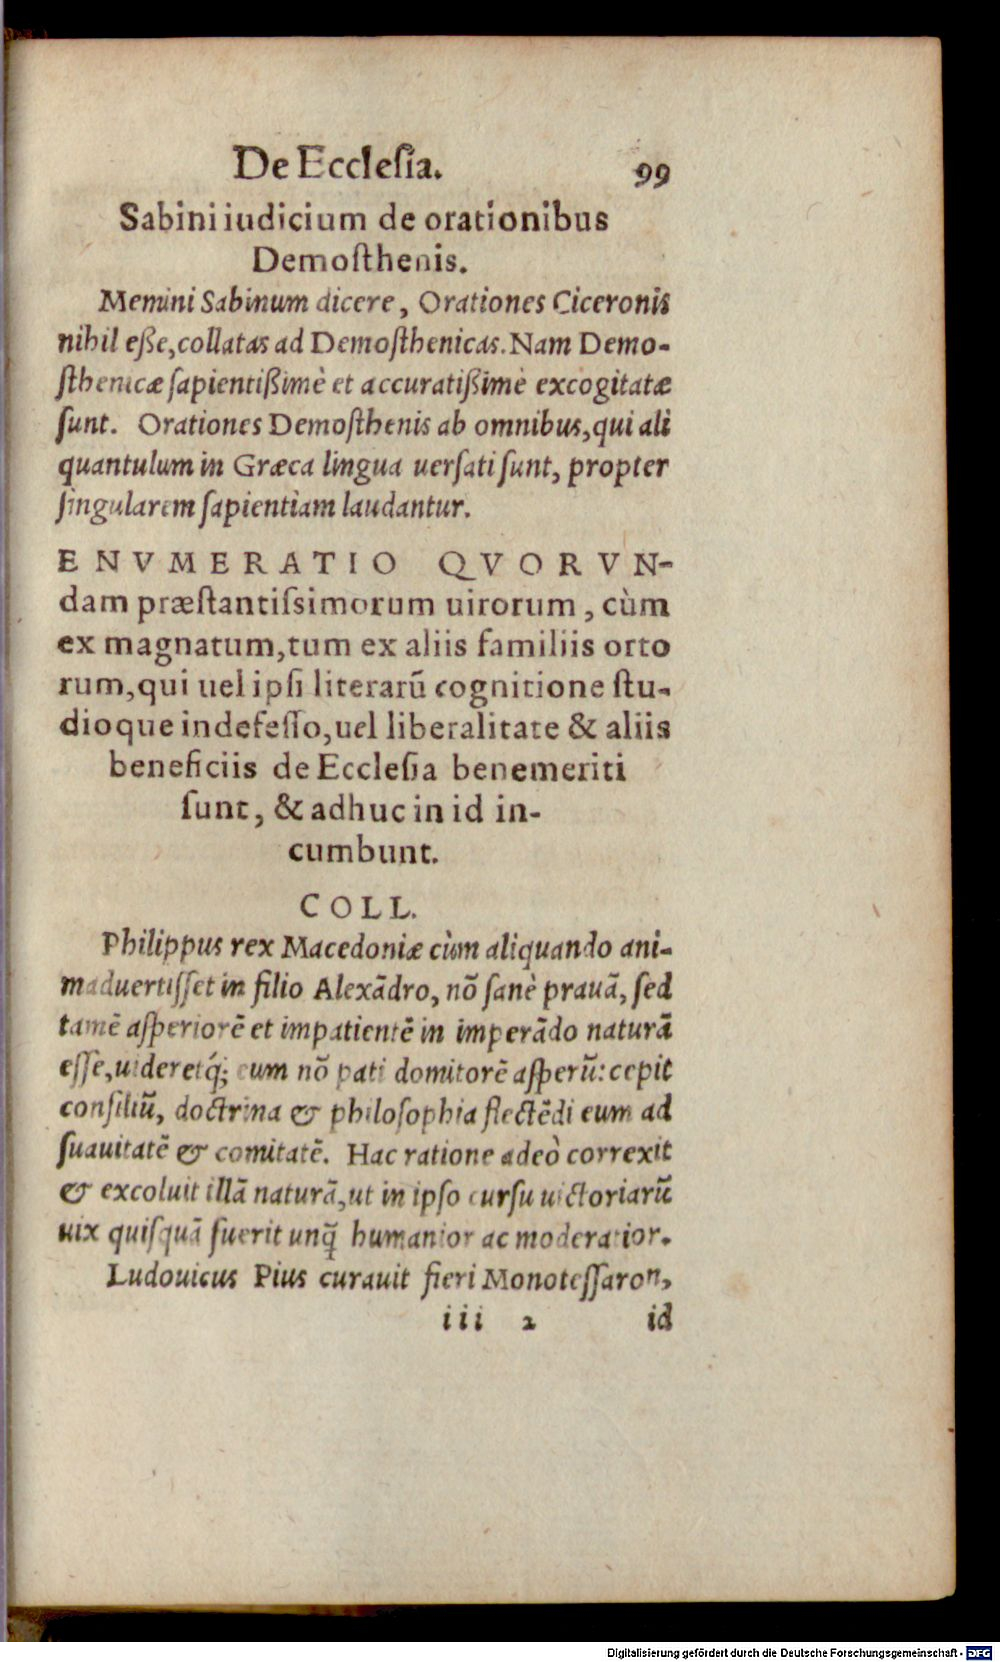 De Ecclesia. 99
Sabini iudicium de orationibus
Demosthenis.
Memini Sabinum dicere, Orationes Ciceronis
nihil eße, collatas ad Demosthenicas. Nam Demo-
sthenicæ sapientißimè et accuratißimè excogitatæ
sunt. Orationes Demosthenis ab omnibus, qui ali
quantulum in Græca lingua uersati sunt, propter
singularem sapientiam laudantur.
ENVMERATIO QVORVN-
dam præstantissimorum uirorum, cùm
ex magnatum, tum ex aliis familiis orto
rum, qui uel ipsi literarũ cognitione stu-
dioque indefesso, uel liberalitate & aliis
beneficiis de Ecclesia benemeriti
sunt, & adhuc in id in-
cumbunt.
COLL.
Philippus rex Macedoniæ cùm aliquando ani-
maduertisset in filio Alexãdro, nõ sanè prauã, sed
tamẽ asperiorẽ et impatientẽ in imperãdo naturã
esse, uideretq́; eum nõ pati domitorẽ asperũ: cepit
consiliũ, doctrina & philosophia flectẽdi eum ad
suauitatẽ & comitatẽ. Hac ratione adeò correxit
& excoluit illã naturã, ut in ipso cursu uictoriarũ
uix quisquã fuerit unq̃ humanior ac moderatior.
Ludouicus Pius curauit fieri Monotessaron,
iii 2 id
Digitalisierung gefördert durch die Deutsche Forschungsgemeinschaft - DFG